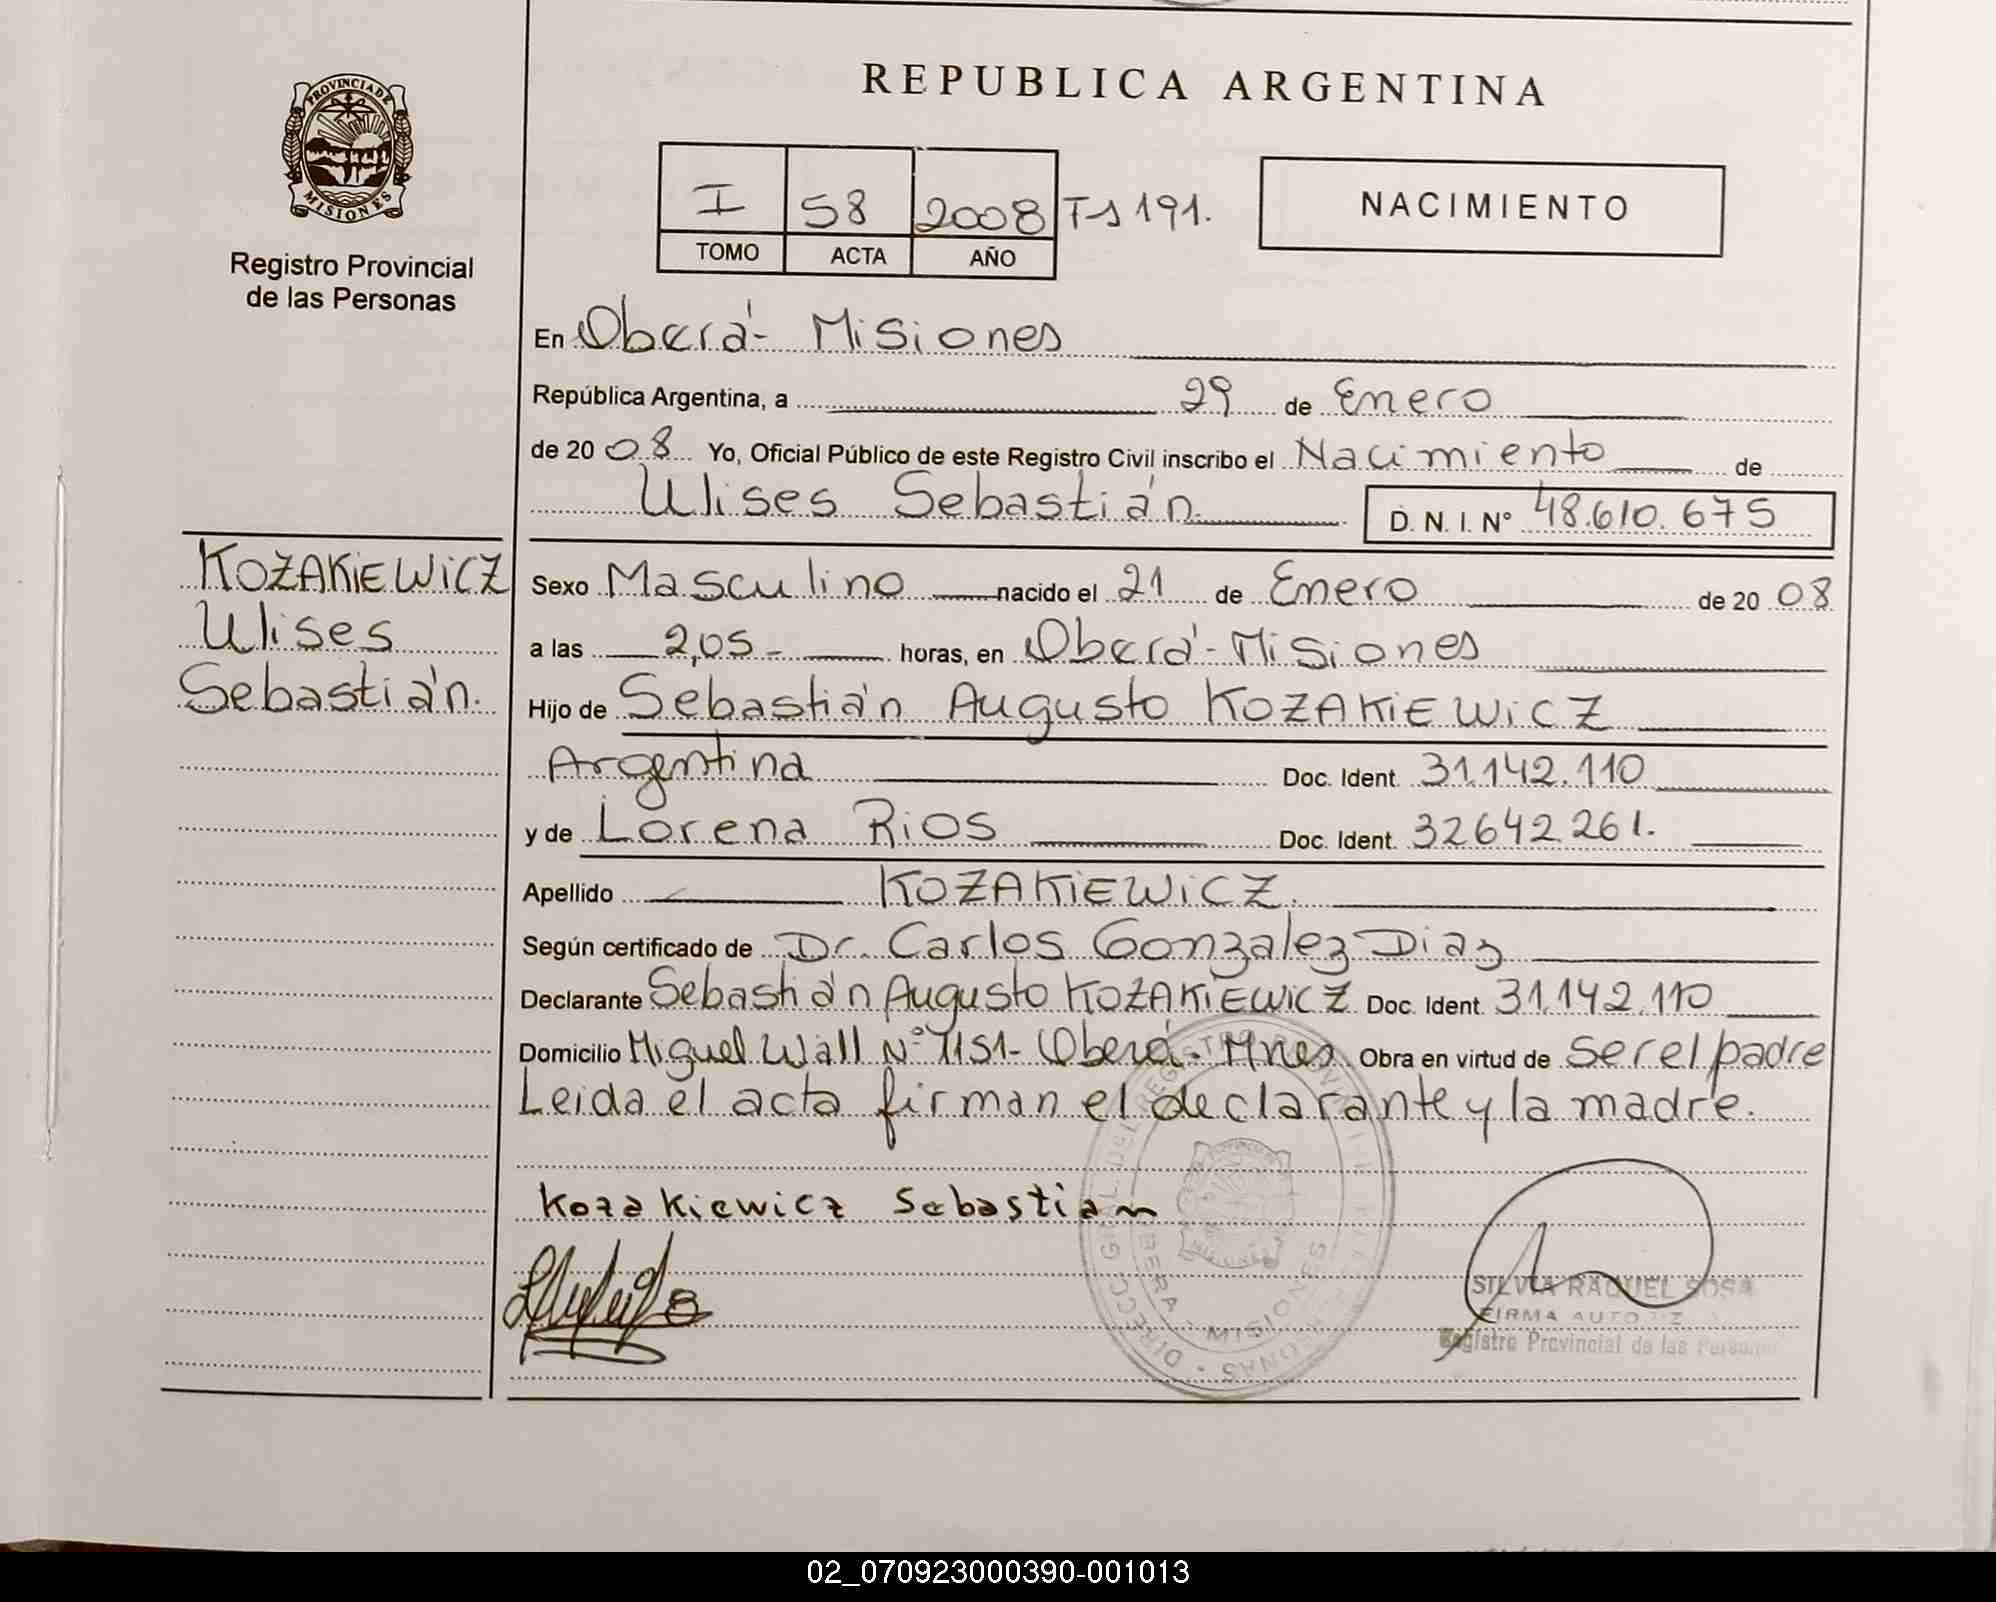 REPUBLICA ARGENTINA
PROVINCIA DE
MISIONES
Registro Provincial
de las Personas
I 58 2008 TS 191.
TOMO ACTA AÑO
NACIMIENTO
En Oberá - Misiones
República Argentina, a 29 de Enero
de 20 08 Yo, Oficial Público de este Registro Civil inscribo el Nacimiento de
Ulises Sebastián D. N. I. N° 48.610.675
KOZAKIEWICZ
Ulises
Sebastián.
Sexo Masculino nacido el 21 de Enero de 20 08
a las 2,05 - horas, en Oberá - Misiones
Hijo de Sebastián Augusto KOZAKIEWICZ
Argentina Doc. Ident. 31.142.110
y de Lorena RIOS Doc. Ident. 32642261.
Apellido KOZAKIEWICZ.
Según certificado de Dr. Carlos Gonzalez Diaz
Declarante Sebastián Augusto KOZAKIEWICZ Doc. Ident. 31.142.110
Domicilio Miguel Wall N° 1151 - Oberá - Mnes Obra en virtud de ser el padre
Leida el acta firman el declarante y la madre.
Kozakiewicz Sebastian
MISIONES
SILVIA RAQUEL SOSA
FIRMA
Registro Provincial de las
02_070923000390-001013